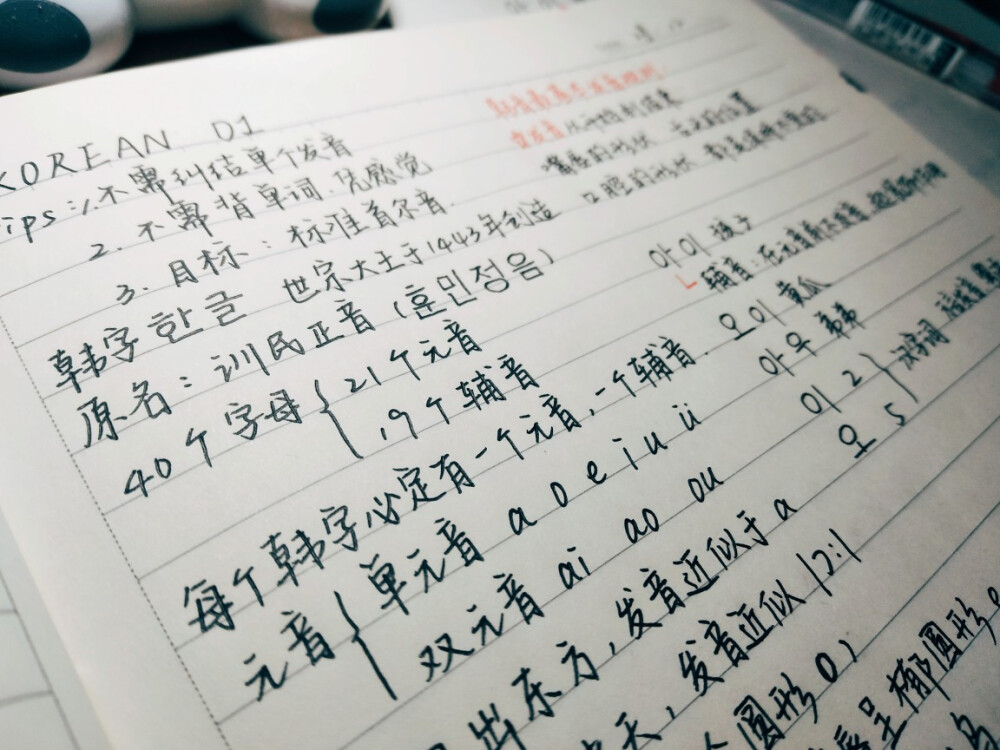 KOREAN 01
ips: 1. 不需纠结单个发音
2. 不需背单词.凭感觉
3. 目标：标准首尔音.
韩字 한글 世宗大王于1443年创造
原名：训民正音 (훈민정음)
40个字母 { 21个元音
19个辅音
每个韩字必定有一个元音,一个辅音.
元音 { 单元音 a o e i u ü
双元音 ai ao ou
出东方,发音近似于a
发音近似 12:1
圆形 o,
呈椭圆形
嘴唇的形状 舌头的位置
口腔的形状
아이 孩子
辅音：在元音前不发音
오이 黄瓜
아우 弟弟
이 2 } 汉字词
오 5